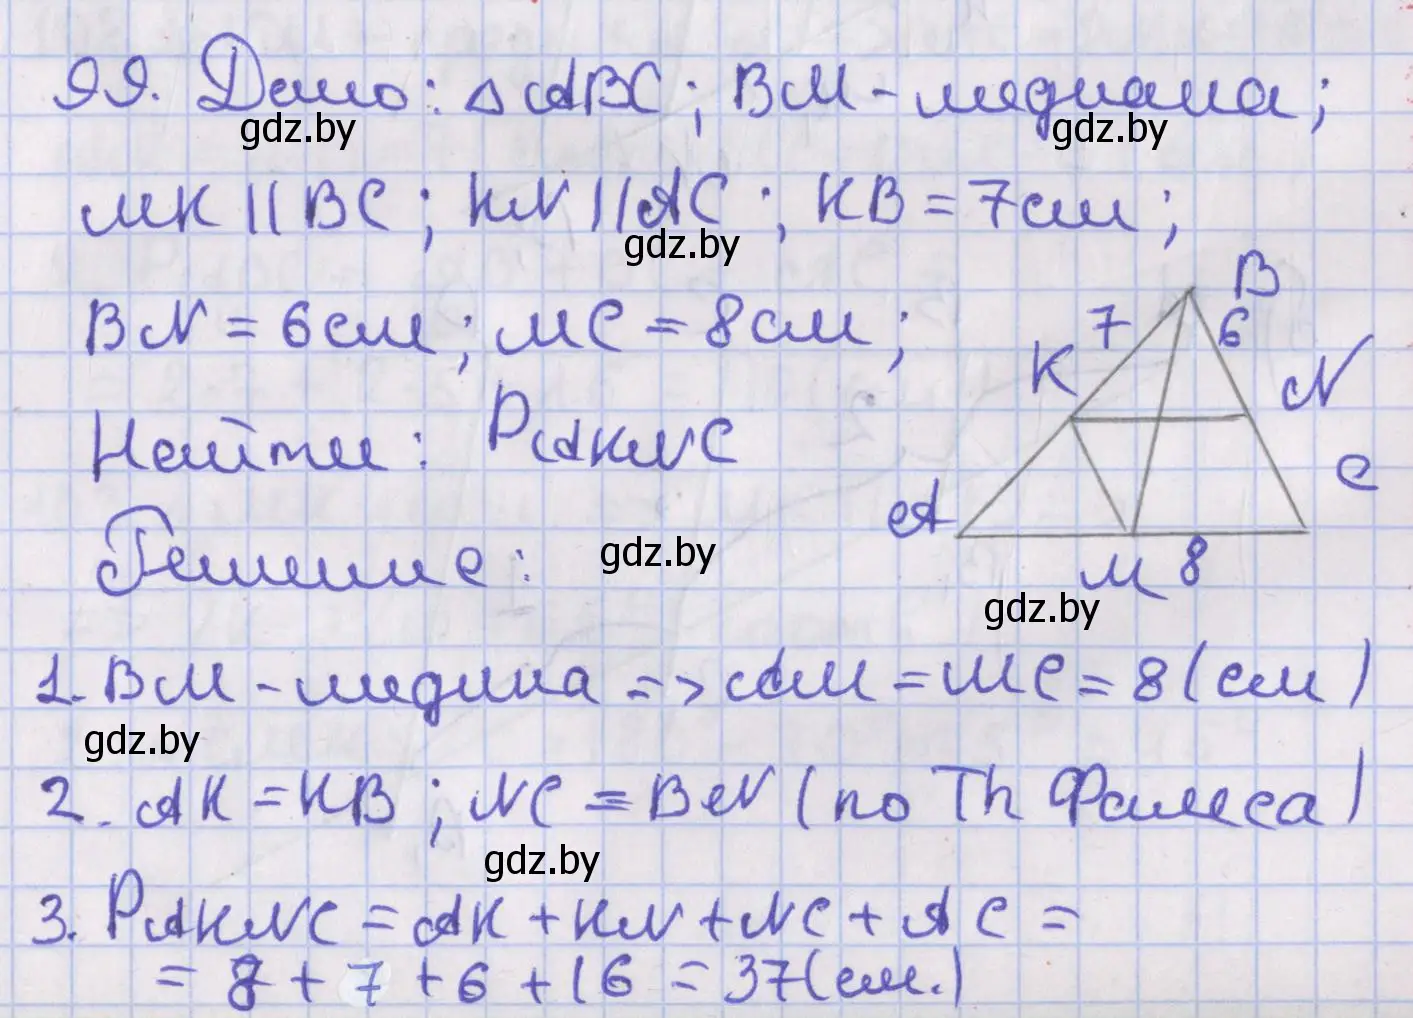 99. Дано: △ABC; BM - медиана;
gdz.by gdz.by
MK || BC; KN || AC; KB = 7см;
gdz.by
BN = 6см; MC = 8см;
Найти: PAKNC
B
7 6
K N
C
A
M 8
gdz.by
Решение:
gdz.by
1. BM - медина => AM = MC = 8 (см)
gdz.by
2. AK = KB; NC = BN (по Th Фалеса)
gdz.by
3. PAKNC = AK + KN + NC + AC =
= 8 + 7 + 6 + 16 = 37(см.)